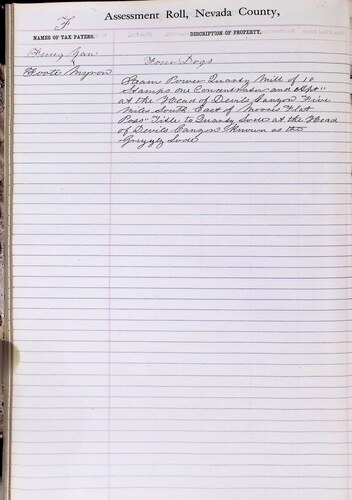 F
Assessment Roll, Nevada County,
NAMES OF TAX PAYERS.
DESCRIPTION OF PROPERTY.
Four Dogs
Foote Myron
Steam Power Quartz Mill of 10
Stamps one Concentrator and
at the Head of Devils Canyon Five
Miles South East of Moores Flat
Poss" Title to Quartz Lode at the Head
of Devils Canyon Known as the
Grizzly Lode